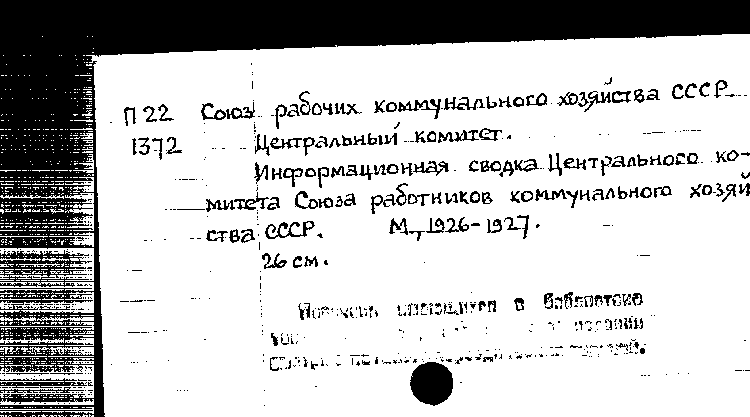 П 22 Союз рабочих коммунального хозяйства СССР.
1372 Центральный комитет.
Информационная сводка Центрального ко-
митета Союза работников коммунального хозяй
ства СССР. М., 1926-1927.
26 см.
имеющихся в библиотеке